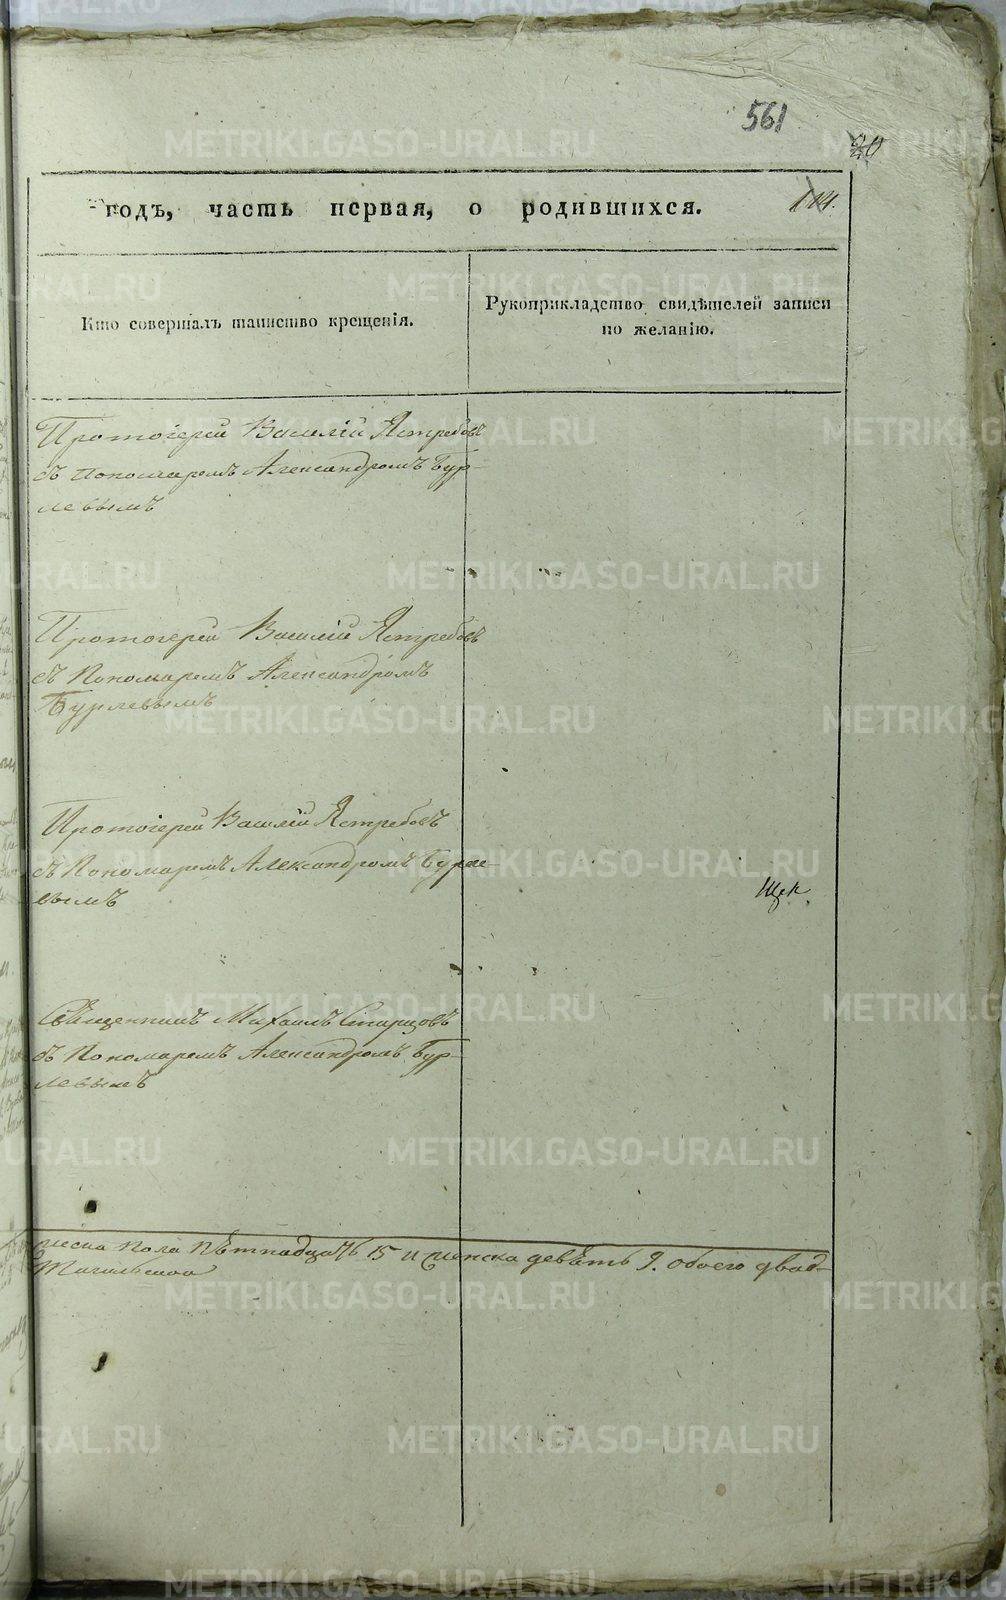 561
20
114.
годъ, часть первая, о родившихся.
Кто совершалъ таинство крещенія.
Рукоприкладство свидѣтелей записи
по желанію.
Протоіерей Василій Ястребовъ
съ пономаремъ Александромъ Бур-
левымъ
Протоіерей Василій Ястребовъ
съ Пономаремъ Александромъ
Бурлевымъ
Протоіерей Василій Ястребовъ
съ Пономаремъ Александромъ Бурле-
вымъ
Щек.
Священникъ Михаилъ Старцовъ
съ Пономаремъ Александромъ Бур-
левымъ
пола пѣтнадцать 15 и женска девѣть 9. обоего двад-
METRIKI.GASO-URAL.RU